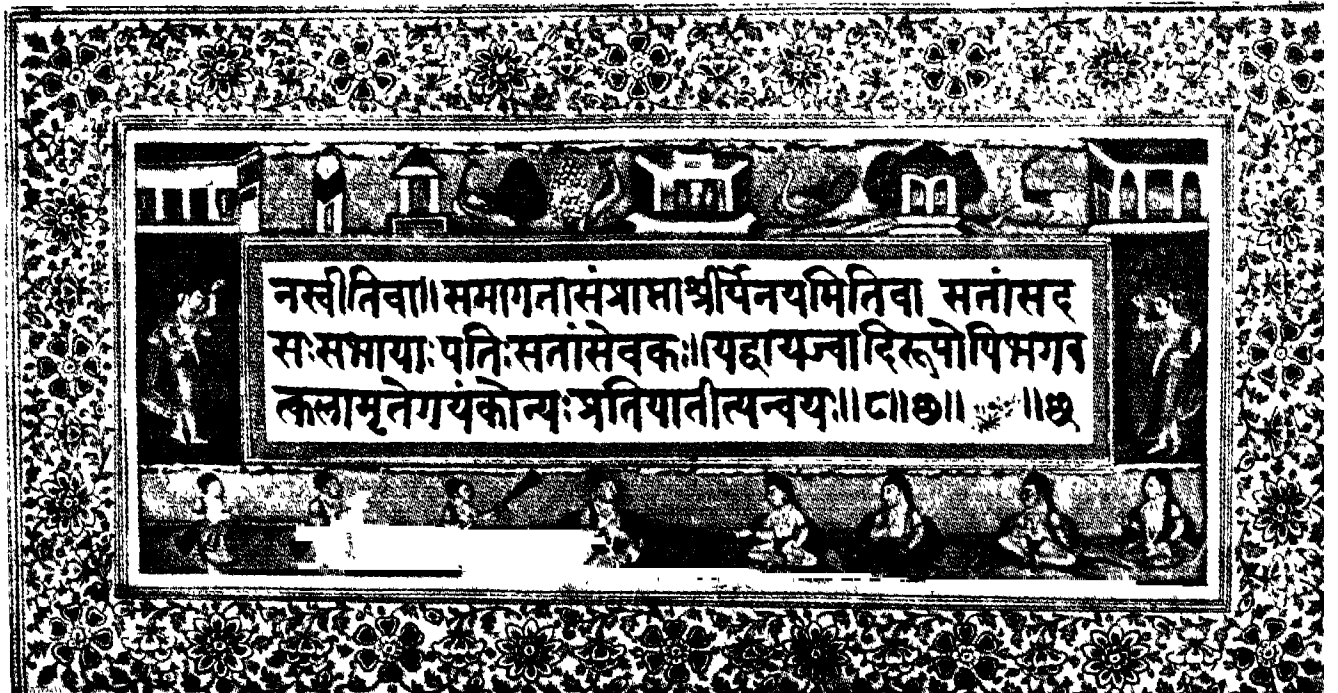 नस्वीतिवा॥समागतासंप्राप्ताश्रीर्येनयमितिवा सतांसद
सःसभायाःपतिःसतांसेवकः॥यद्वायज्वादिरूपोपिभगव
त्कलामृतेगयंकोन्यःप्रतियातीत्यन्वयः॥८॥छ॥ ॥छ